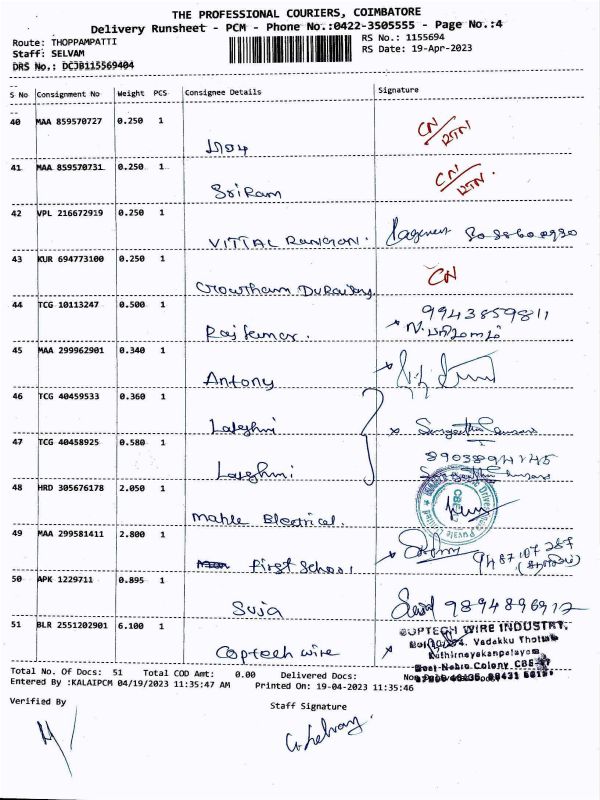 THE PROFESSIONAL COURIERS, COIMBATORE
Delivery Runsheet - PCM - Phone No.:0422-3505555 - Page No.:4
Route: THOPPAMPATTI RS No.: 1155694
Staff: SELVAM RS Date: 19-Apr-2023
DRS No.: DCJB115569404
S No Consignment No Weight PCS Consignee Details Signature
40 MAA 859570727 0.250 1 CN/RTN
41 MAA 859570731 0.250 1 CN/RTN.
SriRam
42 VPL 216672919 0.250 1
VITTAL RANGAN.
43 KUR 694773100 0.250 1 CN
Gowtham Duraisamy
44 TCG 10113247 0.500 1 9943859811
Rajkumar.
45 MAA 299962901 0.340 1
Antony
46 TCG 40459533 0.360 1
Lakshmi
47 TCG 40458925 0.580 1 8903894145
Lakshmi
48 HRD 305676178 2.050 1
Maple Electrical.
49 MAA 299581411 2.800 1
First School 9487107287
50 APK 1229711 0.895 1
Suja 9894896912
51 BLR 2551202901 6.100 1 COPTECH WIRE INDUSTRY,
Vadakku Thottam
Coptech wire Kuthirnayakanpalayam
Total No. Of Docs: 51 Total COD Amt: 0.00 Delivered Docs:
Entered By :KALAIPCM 04/19/2023 11:35:47 AM Printed On: 19-04-2023 11:35:46
Verified By Staff Signature